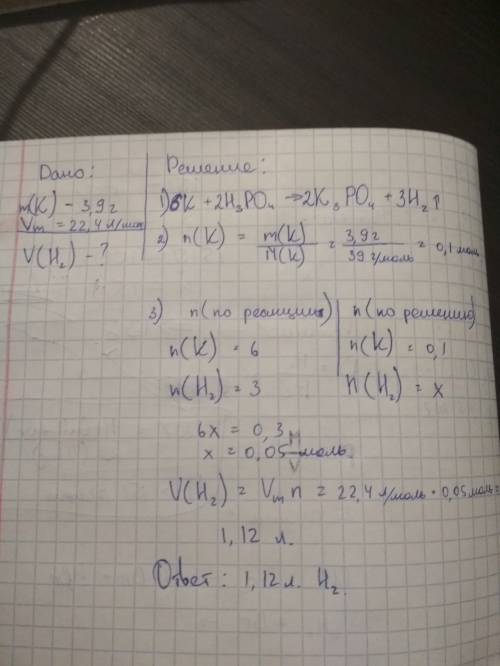 Дано:
m(K) - 3,9 г
Vm = 22,4 л/моль
V(H₂) - ?
Решение:
1) 6K + 2H₃PO₄ → 2K₃PO₄ + 3H₂↑
2) n(K) = m(K)/M(K) = 3,9 г/39 г/моль = 0,1 моль
3) n(по реакции) n(по решению)
n(K) = 6 n(K) = 0,1
n(H₂) = 3 n(H₂) = x
6x = 0,3
x = 0,05 моль.
V(H₂) = Vm n = 22,4 л/моль · 0,05 моль =
1,12 л.
Ответ: 1,12 л. H₂.